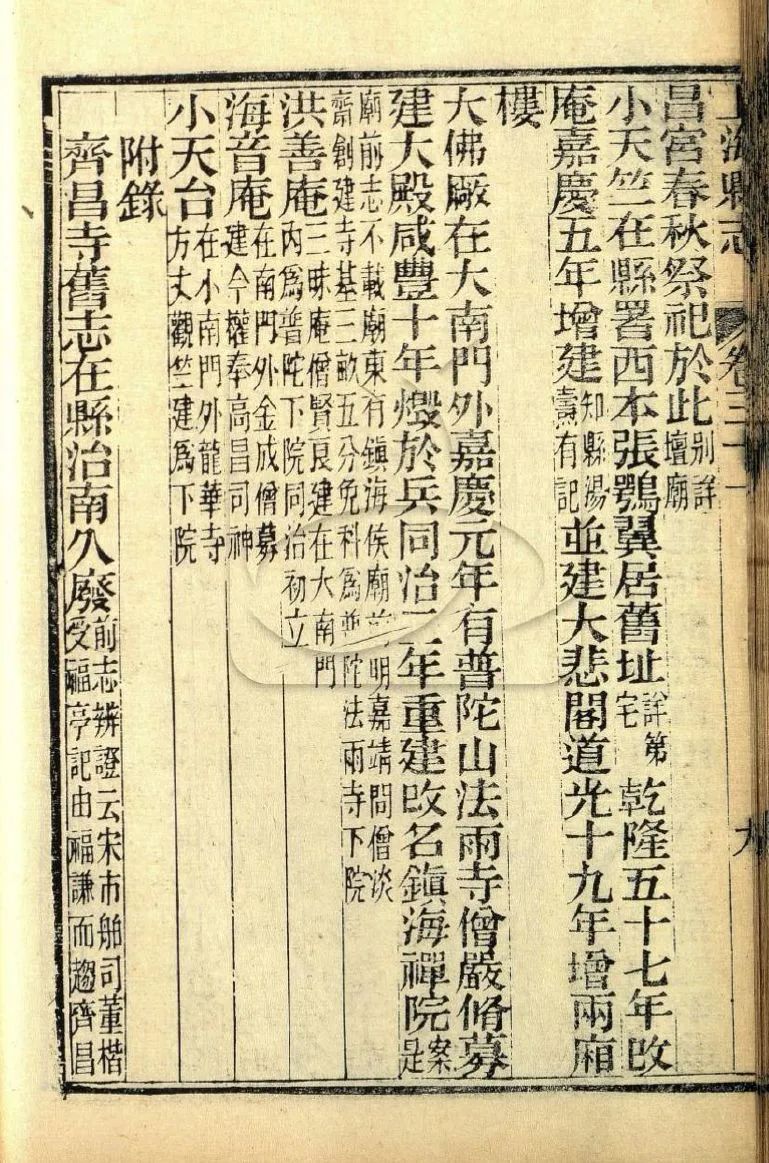 上海縣志 卷三十一 九
昌宮春秋祭祀於此別詳壇廟
小天竺在縣署西本張鶚翼居舊址詳第宅乾隆五十七年改
庵嘉慶五年增建知縣湯燾有記並建大悲閣道光十九年增兩廂
樓
大佛厰在大南門外嘉慶元年有普陀山法雨寺僧嚴脩募
建大殿咸豐十年燬於兵同治二年重建改名鎮海禪院案是
廟前志不載廟東有鎮海侯廟前明嘉靖間僧淡
齋創建寺基三畝五分免科為普陀法雨寺下院
洪善庵三昧庵僧賢良建在大南門內為普陀下院同治初立
海音庵在南門外金成僧募建今權奉高昌司神
小天台在小南門外龍華寺方丈觀竺建為下院
附錄
齊昌寺舊志在縣治南久廢前志辨證云宋市舶司董楷受福亭記由福謙而趨齊昌